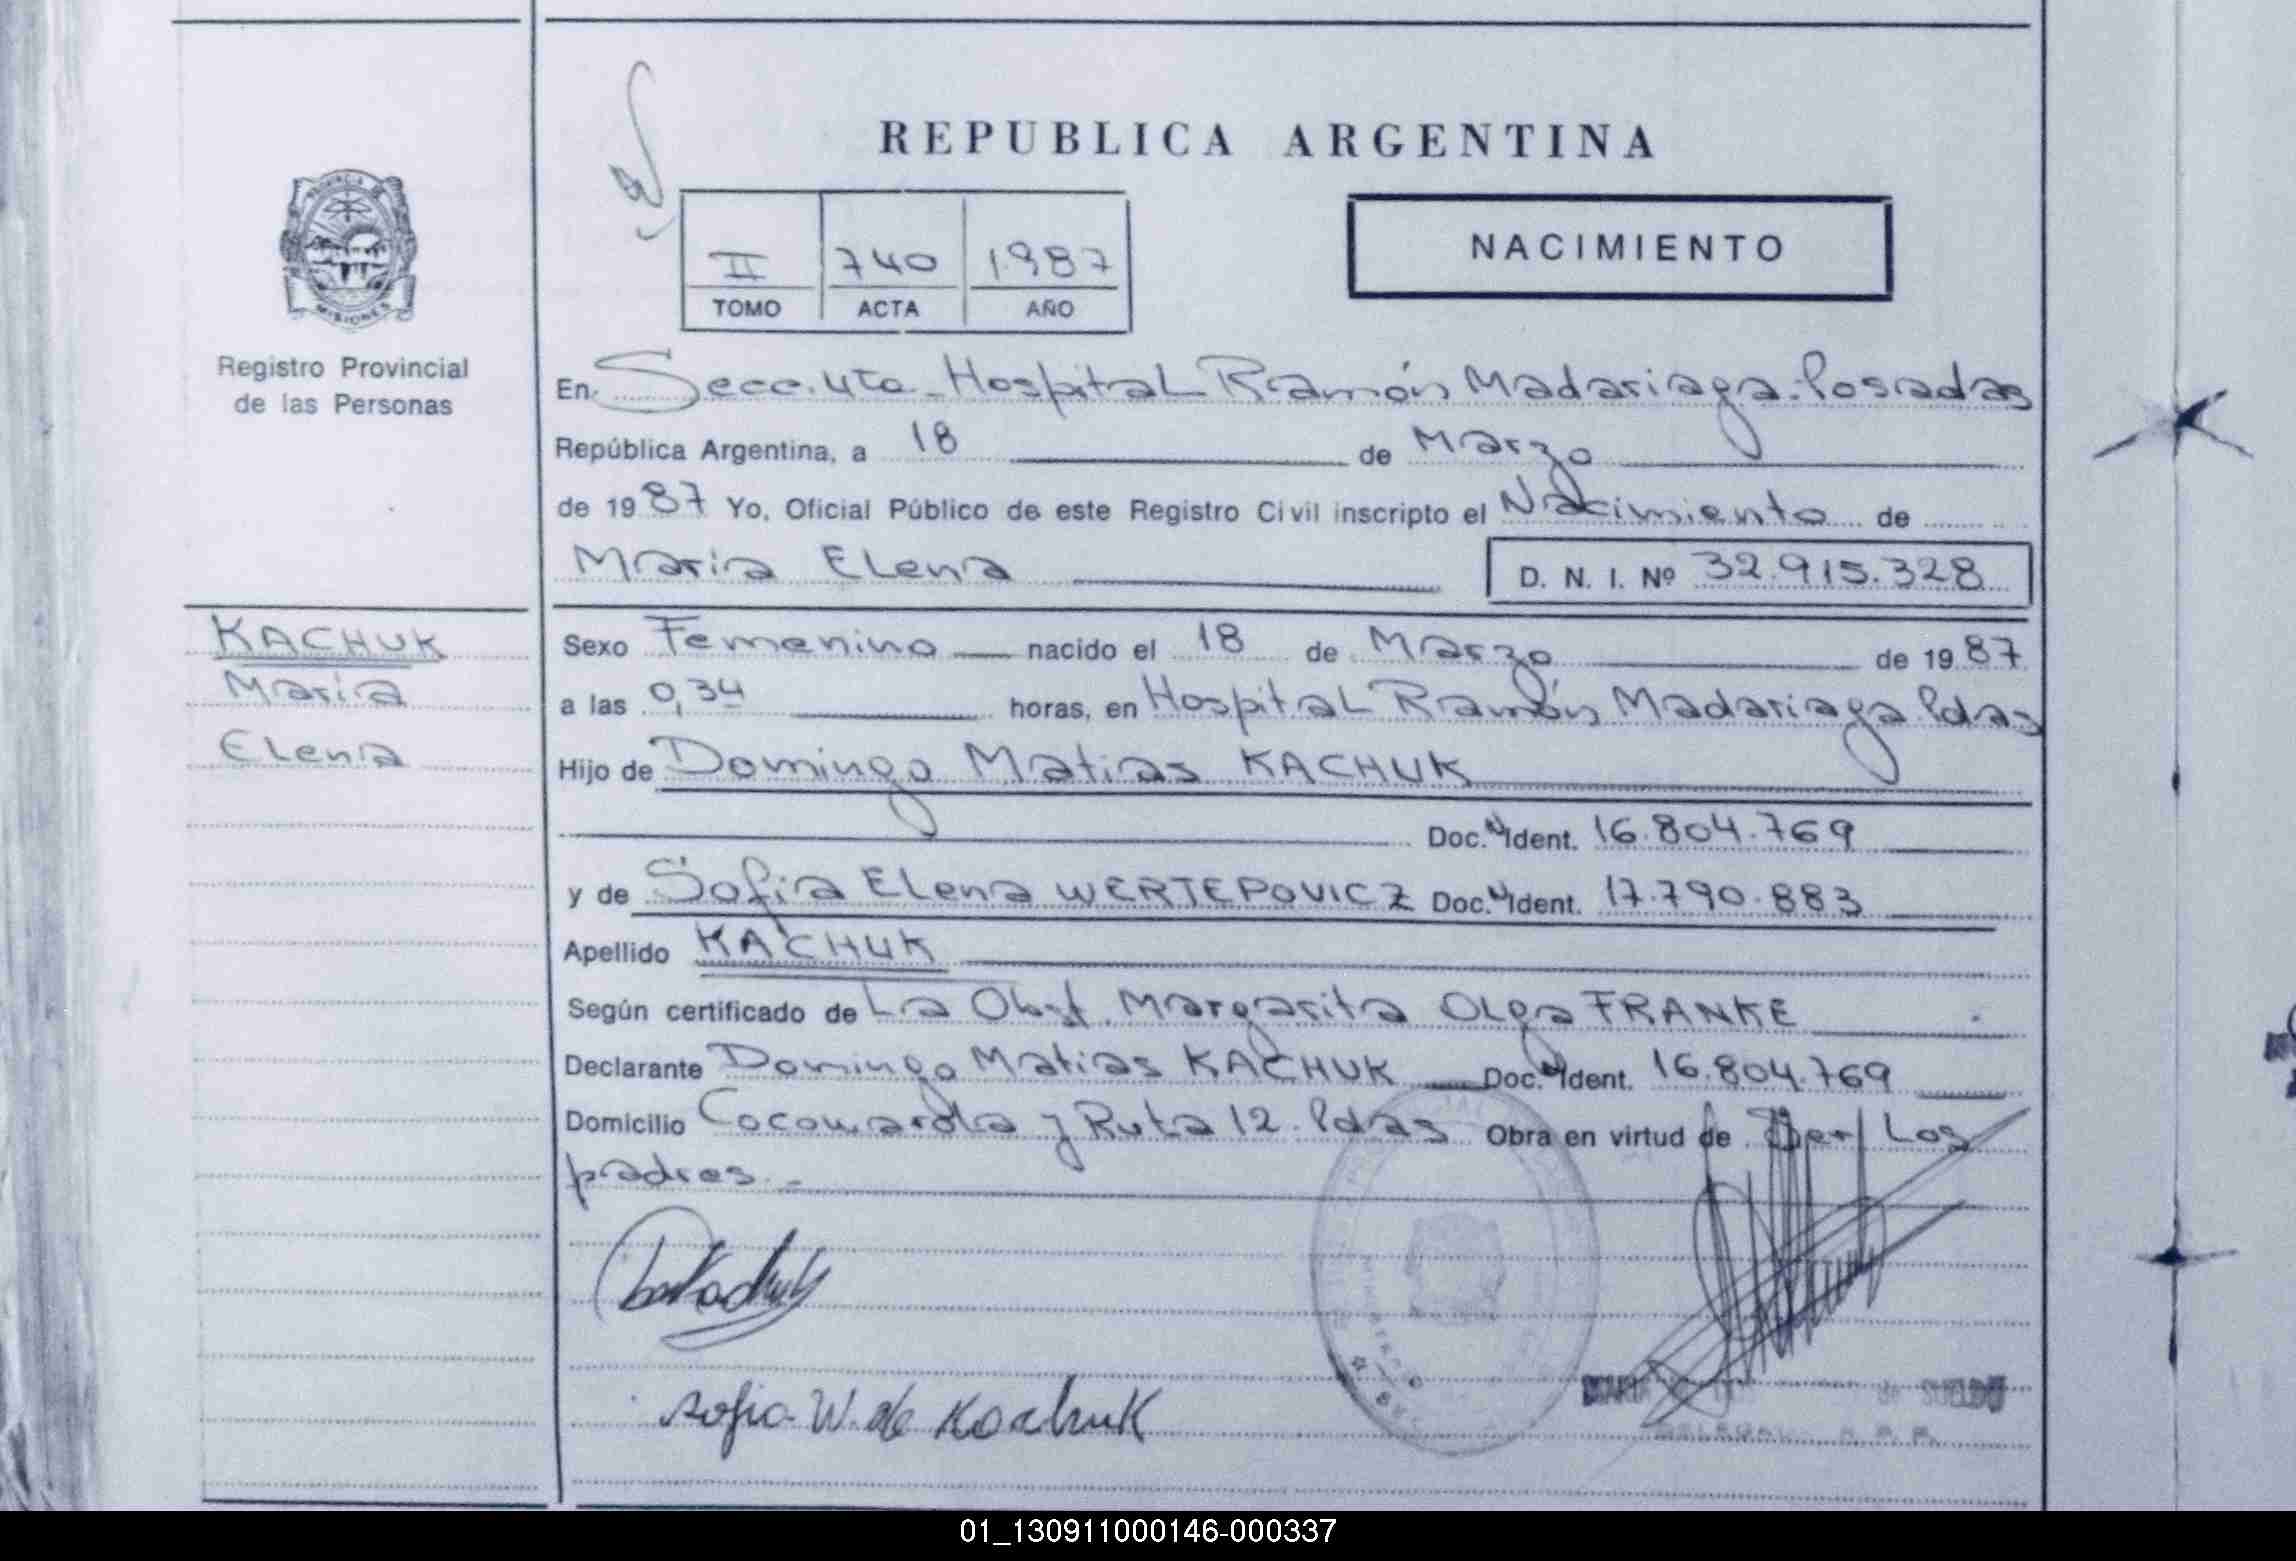 REPUBLICA ARGENTINA
PROVINCIA DE
MISIONES
Registro Provincial
de las Personas
II 740 1987
TOMO ACTA AÑO
NACIMIENTO
En Secc. 4ta - Hospital Ramón Madariaga - Posadas
República Argentina, a 18 de Marzo
de 1987 Yo, Oficial Público de este Registro Civil inscripto el Nacimiento de
Maria Elena D. N. I. Nº 32.915.328
KACHUK
Maria
Elena
Sexo Femenino nacido el 18 de Marzo de 1987
a las 0,34 horas, en Hospital Ramón Madariaga Pdas
Hijo de Domingo Matias KACHUK
Doc. N Ident. 16.804.769
y de Sofia Elena WERTEPOVICZ Doc. N Ident. 17.790.883
Apellido KACHUK
Según certificado de La Obst. Margarita Olga FRANKE
Declarante Domingo Matias KACHUK Doc. N Ident. 16.804.769
Domicilio Cocomarola y Ruta 12. Pdas Obra en virtud de Ser Los
padres. -
Sofia W. de Kachuk
01_130911000146-000337